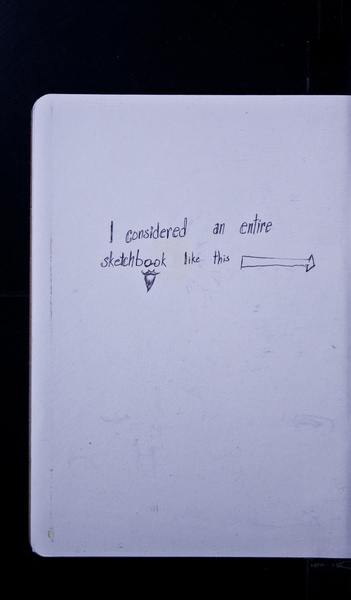 I considered an entire
sketchbook like this